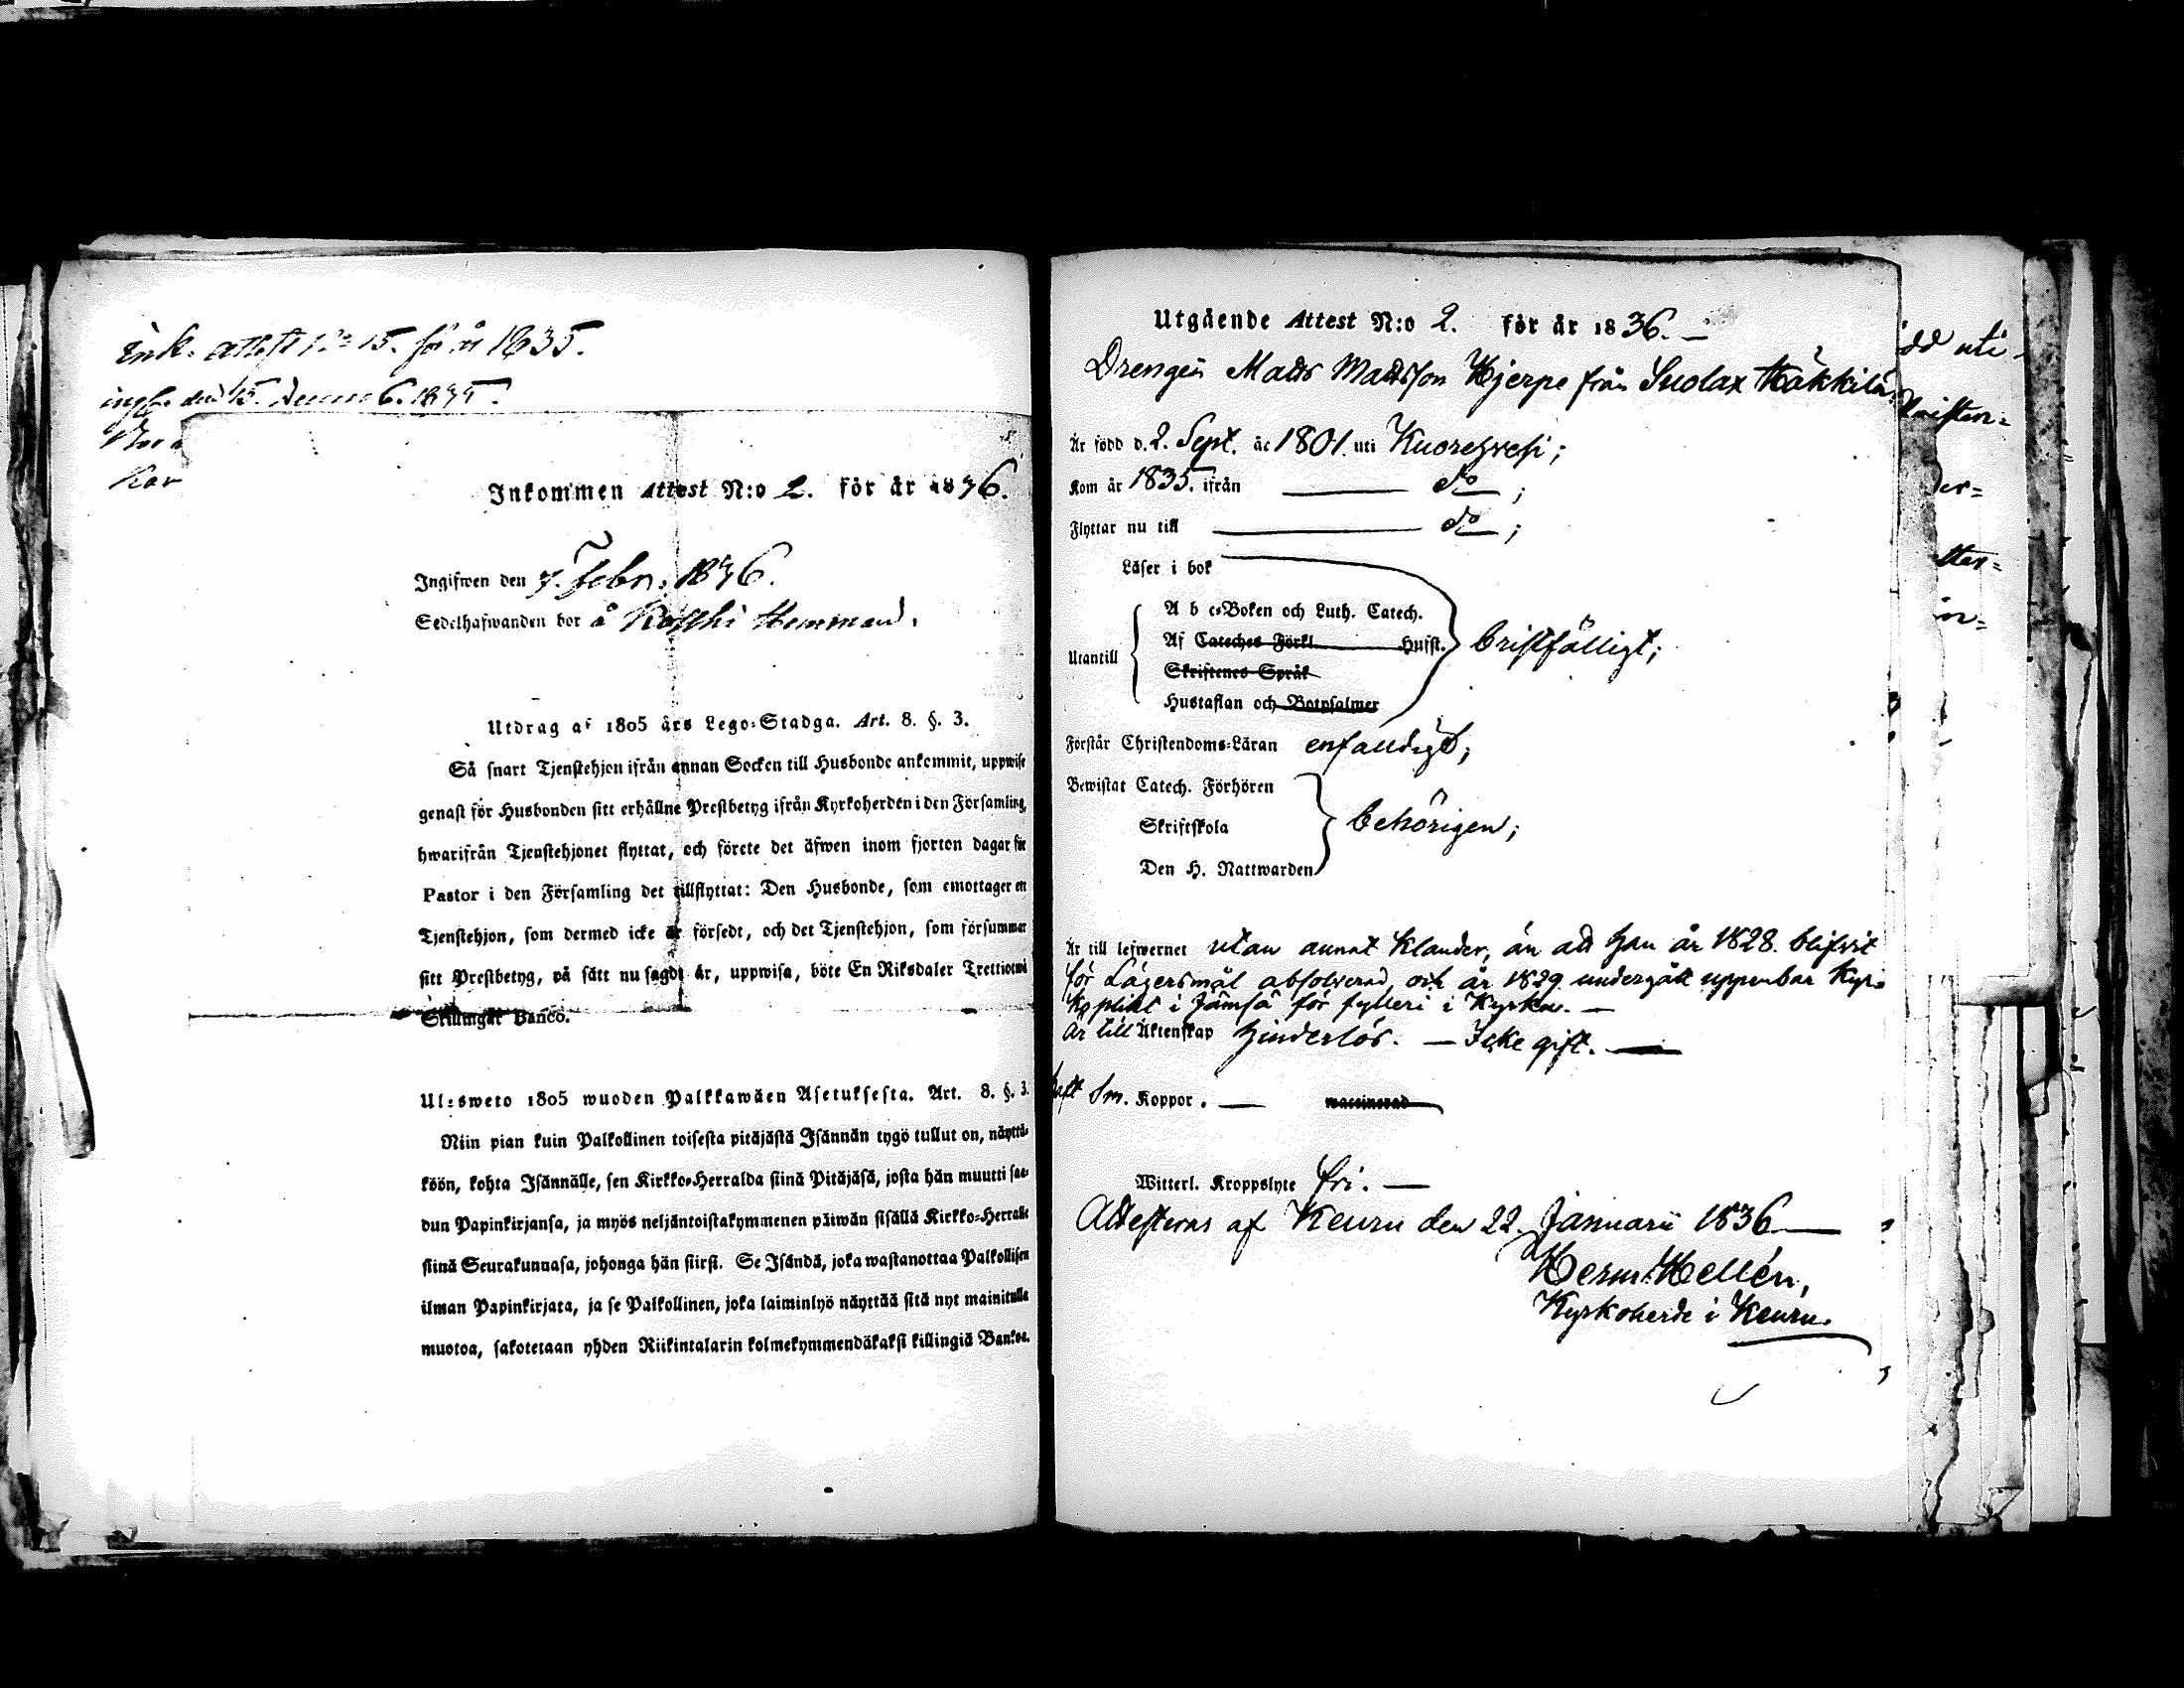 Ink. attest N:o 15. för år 1835.
ingf. den 15. 1835.
Kar
Inkommen Attest N:o 2. för år 1836.
Ingifwen den 7. Febr. 1836.
Sedelhafwanden bor å Hemman.
Utdrag af 1805 års Lego-Stadga. Art. 8. §. 3.
Så snart Tjenstehjon ifrån annan Socken till Husbonde ankommit, uppwise
genast för Husbonden sitt erhållne Prestbetyg ifrån Kyrkoherden i den Församling,
hwarifrån Tjenstehjonet flyttat, och förete det äfwen inom fjorton dagar för
Pastor i den Församling det tillflyttat: Den Husbonde, som emottager en
Tjenstehjon, som dermed icke är försedt, och det Tjenstehjon, som försummar
sitt Prestbetyg, på sätt nu sagdt är, uppwisa, böte En Riksdaler Trettiotwå
Skillingar Banco.
Ulosweto 1805 wuoden Palkkawäen Asetuksesta. Art. 8. §. 3.
Niin pian kuin Palkollinen toisesta pitäjästä Isännän tygö tullut on, näyttä-
köön, kohta Isännälle, sen Kirkko-Herralda siinä Pitäjäsä, josta hän muutti saa-
dun Papinkirjansa, ja myös neljäntoistakymmenen päiwän sisällä Kirkko-Herralle
siinä Seurakunnasa, johonga hän siirsi. Se Isändä, joka wastanottaa Palkollisen
ilman Papinkirjata, ja se Palkollinen, joka laiminlyö näyttää sitä nyt mainitulla
muotoa, sakotetaan yhden Riikintalarin kolmekymmendäkaksi killingiä Bankoa.
Utgående Attest N:o 2. för år 1836. —
Drengen Matts Mattsson Hjerpe från Suolax Käkkilä
Är född d. 2. Sept. år 1801. uti Kuorevesi;
Kom år 1835. ifrån —— do ;
Flyttar nu till —— do ;
Läser i bok
A b c-Boken och Luth. Catech.
Af Cateches Förkl. Husft.
Utantill
bristfälligt;
Skriftenes Språk
Hustaflan och Botpsalmer
Förstår Christendoms-Läran enfaldigt;
Bewistat Catech. Förhören
Skriftskola behörigen;
Den H. Nattwarden
Är till lefwernet utan annat klander, än att han år 1828. blifvit
för Lägersmål absolverad, och år 1829 undergått uppenbar Kyr-
koplikt i Jämsä för fylleri i Kyrkan. —
Är till Äktenskap hinderlös. — Icke gift. —
haft Sm. Koppor. — waccinerad
Witterl. Kroppslyte fri. —
Attesteras af Keuru den 22. Januarii 1836 —
Herm. Hellén,
Kyrkoherde i Keuru.
dd uti